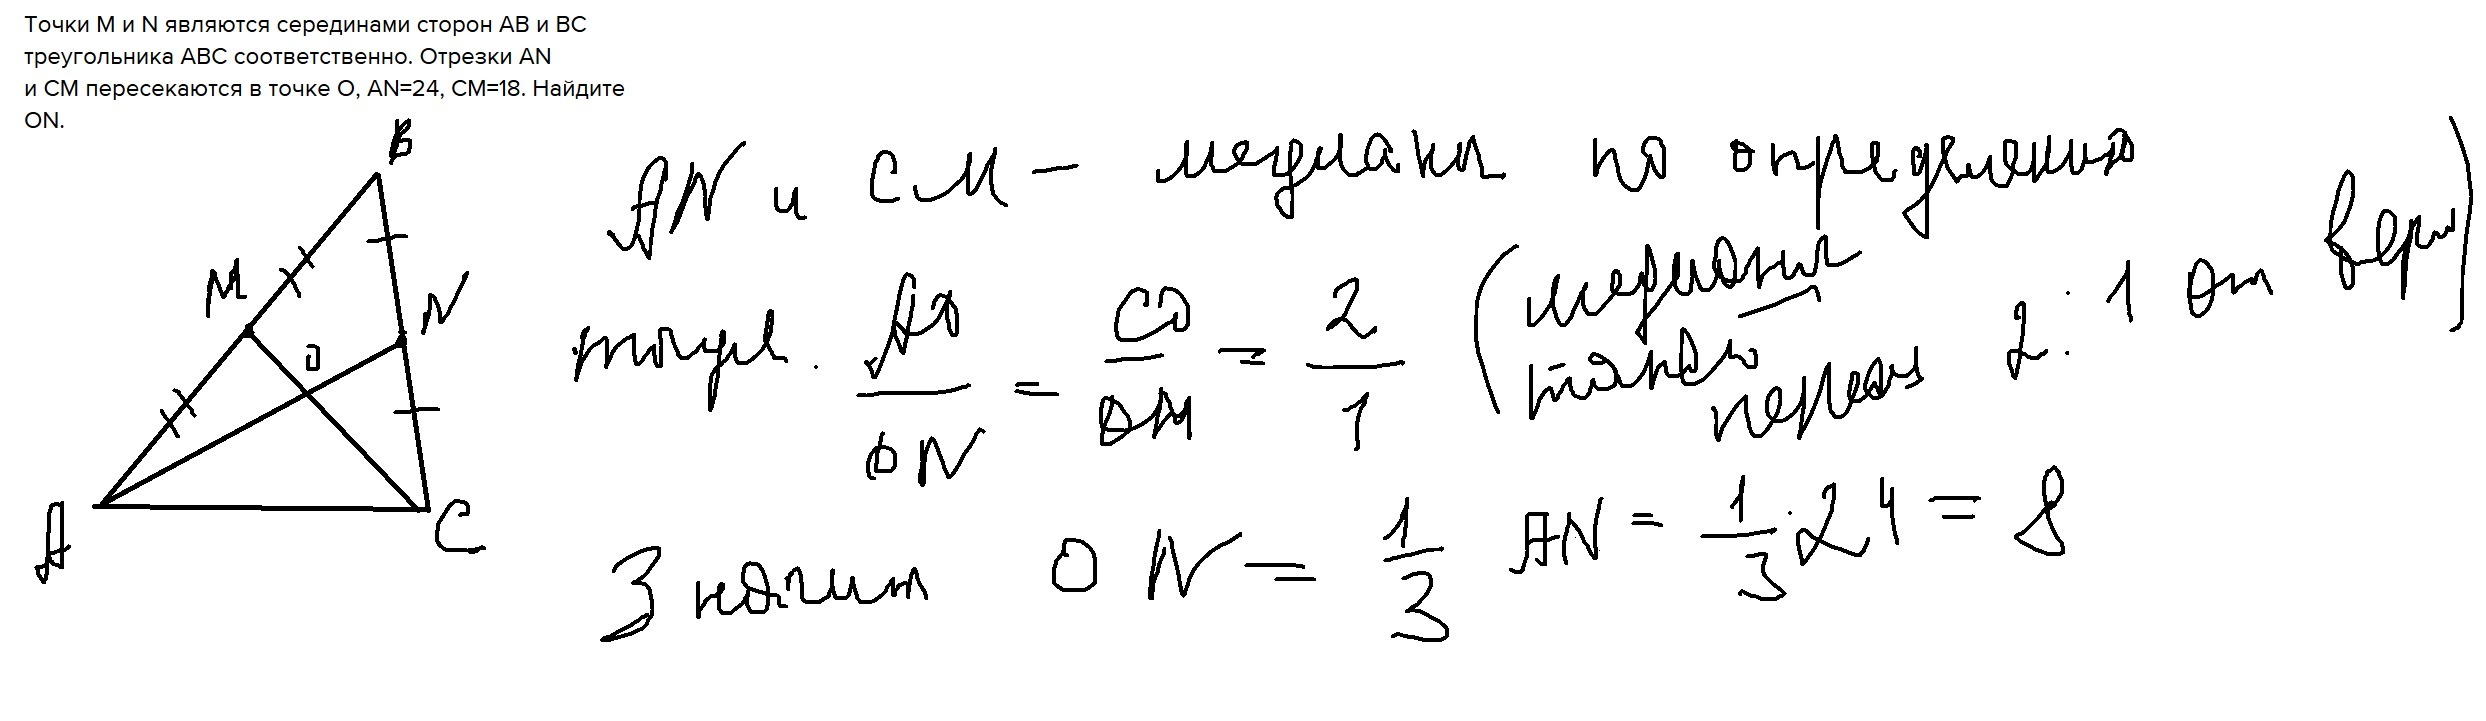 Точки M и N являются серединами сторон AB и BC
треугольника ABC соответственно. Отрезки AN
и CM пересекаются в точке O, AN=24, CM=18. Найдите
ON.
B
M
N
O
A
C
AN и CM — медианы по определению
тогда. AO/ON = CO/OM = 2/1 (медианы точкой перес 2:1 от верш)
Значит ON = 1/3 AN = 1/3·24 = 8